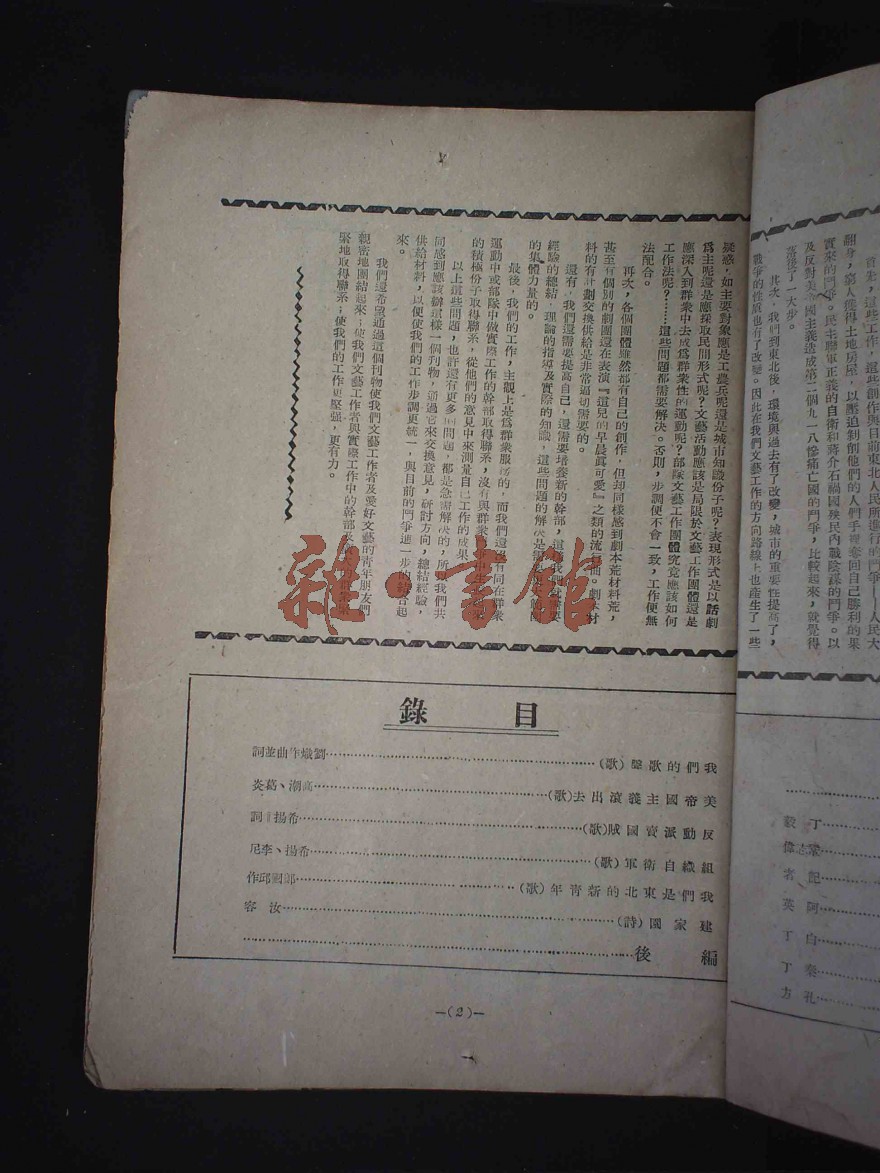 疑惑,如主要對象應是工農兵呢還是城市知識份子呢?表現形式是以話劇
爲主呢還是應採取民間形式呢?文藝活動應該是局限於文藝工作團體還是
應深入到群衆中去成爲群衆性的運動呢?部隊文藝工作團體究竟應該如何
工作法呢?……這些問題都需要解決。否則,步調便不會一致,工作便無
法配合。
再次,各個團體雖然都有自己的創作,但却同樣感到劇本荒材料荒,
甚至有個別的劇團還在表演『這兒的早晨眞可愛』之類的流行曲。劇本材
料的有計劃交換供給是非常迫切需要的。
還有,我們還需要提高自己,還需要培養新的幹部,這
經驗的總結,理論的指導及實際的知識,這些問題的解決是需要
的集體力量的。
最後,我們的工作,主觀上是爲群衆服務的,而我們還沒有同在群衆
運動中或部隊中做實際工作的幹部取得聯系,沒有與群衆
的積極份子取得聯系,從他們的意見中來測量自己工作的成果
以上這些問題,也許還有更多的問題,都是急需解決的,所以我們共
同感到應該辦這樣一個刊物,通過它來交換意見,研討方向,總結經驗,
供給材料,以便使我們的工作步調更統一,與目前的鬥爭進一步的結合起
來。
我們還希望通過這個刊物使我們文藝工作者及愛好文藝的青年朋友們
親密地團結起來;使我們文藝工作者與實際工作中的幹部及
緊地取得聯系;使我們的工作更堅强,更有力。
翻分,窮人獲得土地房屋,以及追剝削他們的人們手裡奪回自己勝利的果
實來的鬥爭。民主聯軍正義的自衛和蔣介石禍國殃民內戰陰謀的鬥爭。以
及反對美帝國主義造成第二個九一八慘痛亡國的鬥爭,比較起來,就覺得
落後了一大步。
其次,我們到東北後,環境與過去有了改變,城市的重要性提高了,
戰爭的性質也有了改變。因此在我們文藝工作的方向路線上也產生了一些
目錄
我們的歌聲(歌)……劉熾作曲並詞
美帝國主義滾出去(歌)……高潮、葛炎
反動派賣國賊(歌)……希揚 詞
組織自衛軍(歌)……希揚、李尼
我們是東北的新青年(歌)……邱作
建家園(詩)……汝容
編後……
丁毅
記者
阿英
白丁
秦丁
孔方
—(2)—
雜·書館